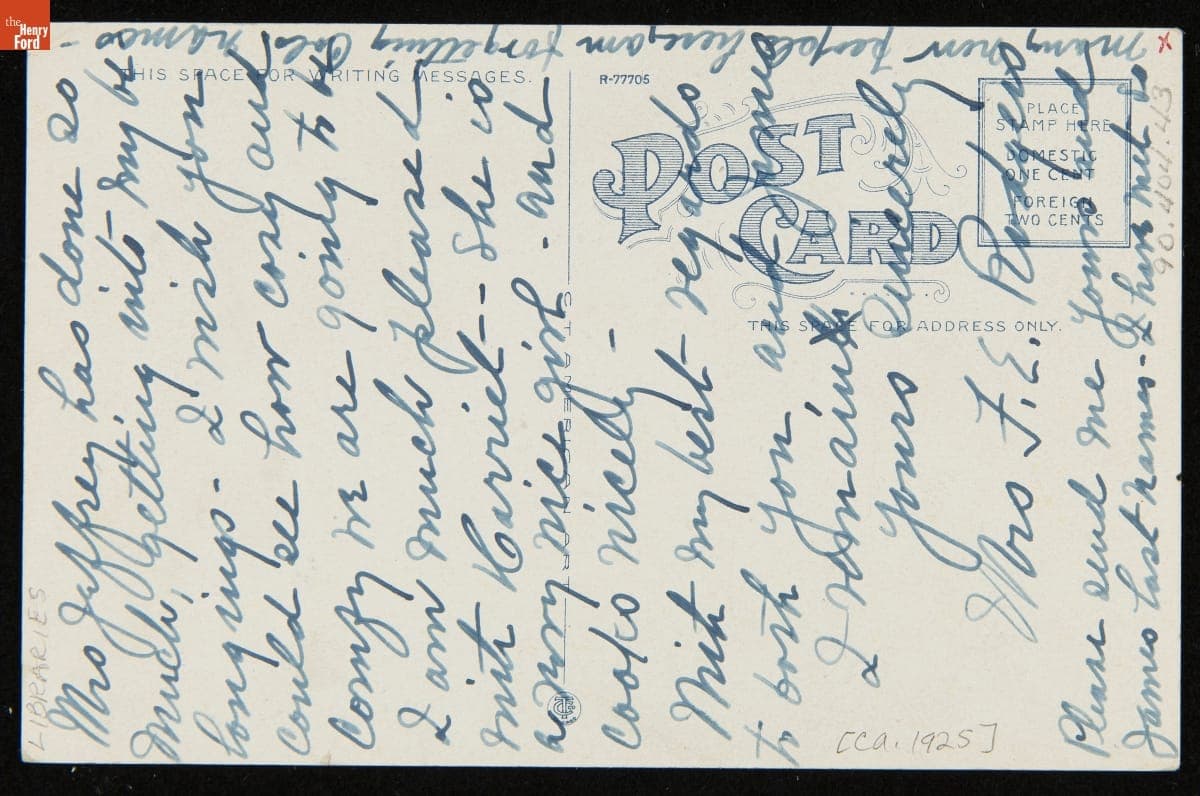 the
Henry
Ford
THIS SPACE FOR WRITING MESSAGES.
R-77705
POST
CARD
PLACE
STAMP HERE
DOMESTIC
ONE CENT
FOREIGN
TWO CENTS
THIS SPACE FOR ADDRESS ONLY.
C.T. AMERICAN ART
Mrs Jeffrey has done so
much, getting into my be
longings - I wish you
could see how cosy and
comfy we are going to be
I am much pleased
with Harriet -- She is
a very nice girl - and
cooks nicely -
With my best regards
to both you and James
I remain
Yours Sincerely
Mrs F. E. Rodgers
Please send me Youro and
James last names - I have met so
many new people here, am forgetting old names -
x
90.404.43
[ca. 1925]
LIBRARIES